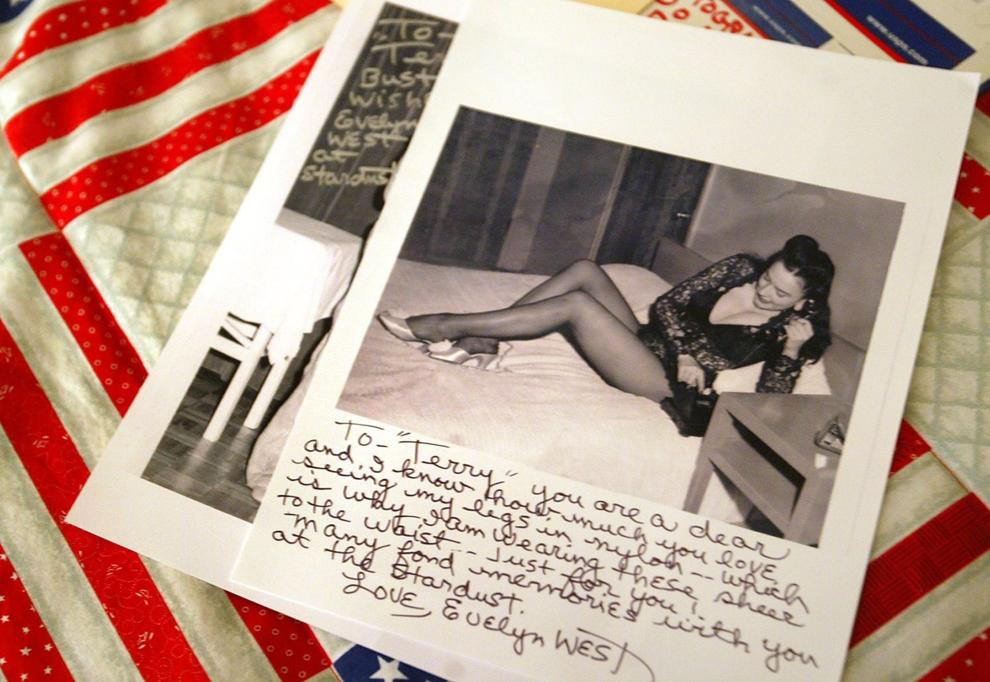 "To-
Ter
Bust
Wishe
Evelyn
WEST
at
Stardust
www.usps.com
www.usps.com
To- "Terry" you are a dear
and I know how much you love
seeing my legs in nylon -- which
is why I am wearing these sheer
to the waist -- Just for you!
many fond memories with you
at the Stardust.
Love, Evelyn WEST